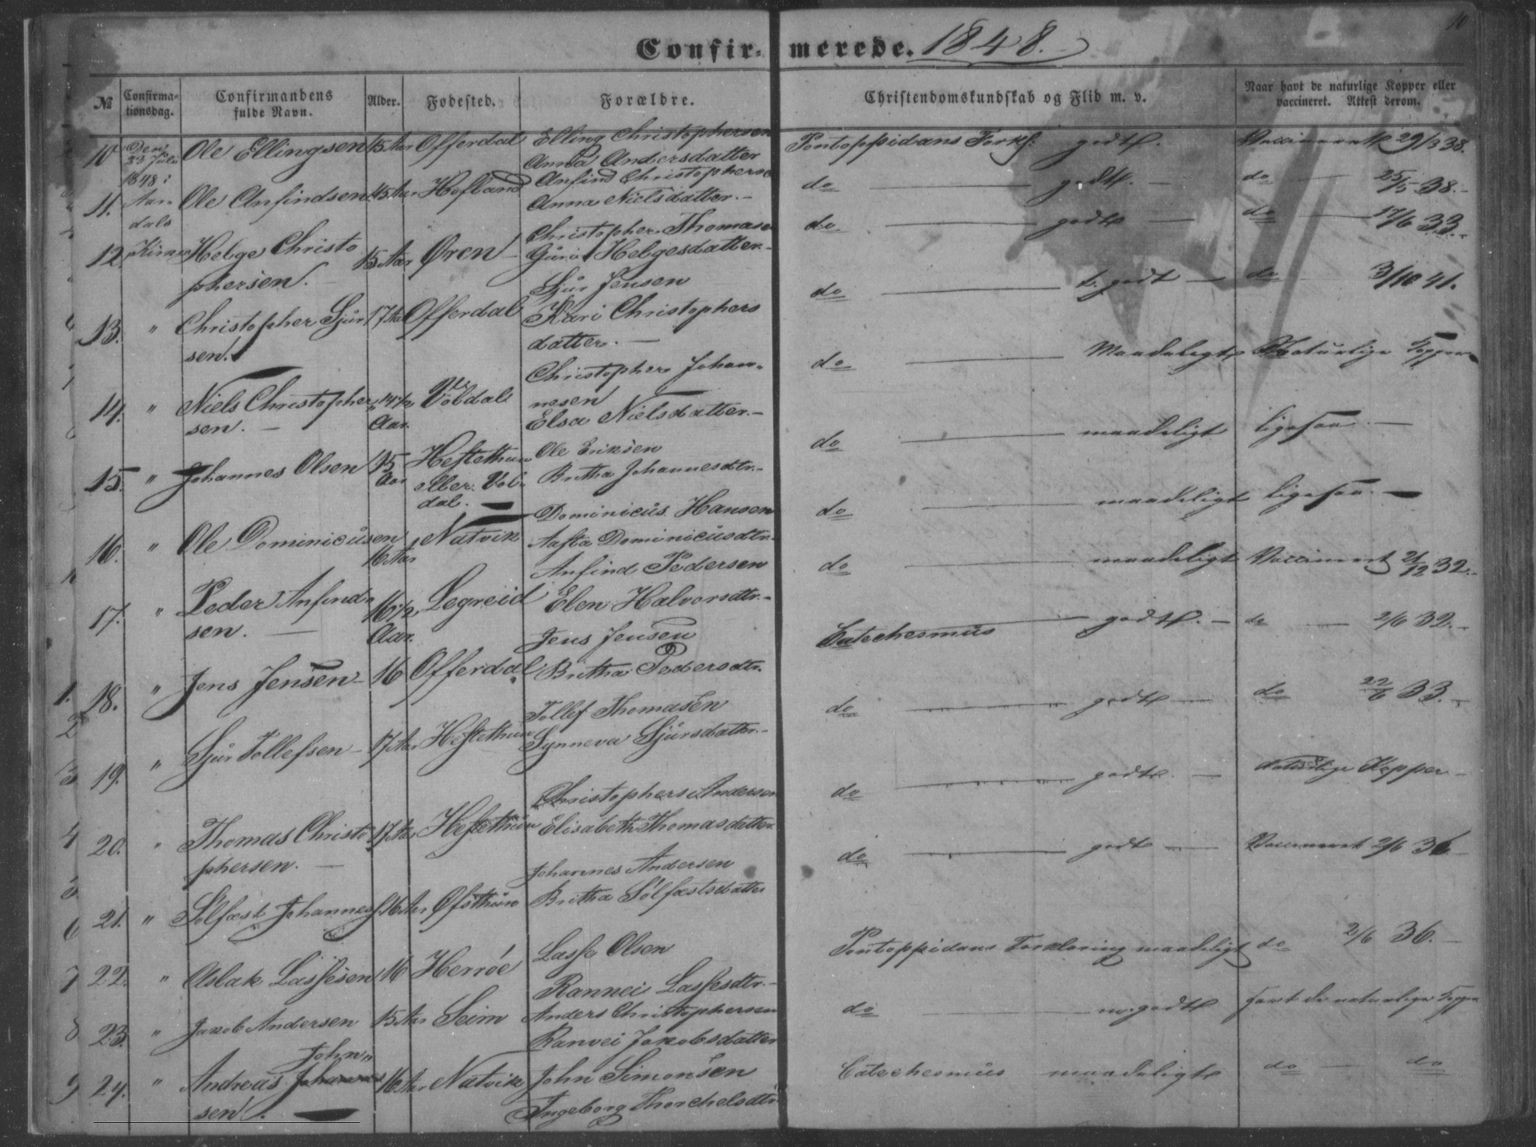 Confirmerede. 1848.
10
№ Confirmationsdag. Confirmandens fulde Navn. Alder. Fødested. Forældre. Christendomskundskab og Flid m. v. Naar havt de naturlige Kopper eller vaccineret. Attest derom.
10 Den 23 Julii 1848 i Ole Ellingsen 15 Aar Offerdal Elling Christophersen Anna Andersdatter Pontoppidans Forkl. godt. Vaccineret 29/3 38.
11. Aardals Ole Anfindsen 15 Aar Hofland Anfind Christophersen Anna Nielsdatter. do godt. do 25/5 38.
12. Kirke Helge Christophersen. 15 Aar Øren Christopher Thomasen Guri Helgesdatter. do godt do 17/6 33.
13. " Christopher Sjursen. 17 Aar Offerdal Sjur Jensen Kari Christophersdatter. do t. godt do 3/10 41.
14. " Niels Christophersen. 14 1/2 Aar. Vobdal Christopher Johannesen Elsa Nielsdatter. do Maadeligt Naturlige Kopper
15. " Johannes Olsen 15 Aar Hestethun eller Vobdal. Ole Eriksen Britha Johannesdtr. do maadeligt ligesaa.
16. " Ole Dominicusen 16 Aar Natvik Dominicus Hansen Aasta Dominicusdtr. do maadeligt ligesaa.
17. " Peder Anfindsen. 16 1/2 Aar. Legreid Anfind Pedersen Elen Halvorsdtr. do maadeligt Vaccineret 21/12 32.
18. " Jens Jensen 16 Offerdal Jens Jensen Britha Pedersdtr. Catechesmus godt. do 2/6 32.
19. " Sjur Tollefsen 17 Aar Hestethun Tollef Thomasen Synneva Sjursdatter. do godt do 22/6 33.
20. " Thomas Christophersen. 17 Aar Hestethun Christophers Andersen Elisabeth Thomasdatter do godt. naturlige Kopper
21. " Sølfæst Johannes 16 Aar Øfsthun Johannes Andersen Britha Sølfæstsdatter do godt Vaccineret 2/6 36
22. " Aslak Lassesen 16 Herrøe Lasse Olsen Rannei Lassesdtr. Pontoppidans Forklaring maadeligt do 2/6 36.
23. " Jacob Andersen 15 Aar Seim Anders Christophersen Ranvei Jakobsdatter do godt havt de naturlige Kopper
24. " Andreas Johnsen. 16 Aar Natvik John Simonsen Ingeborg Thorchelsdtr Catechesmus maadeligt do do